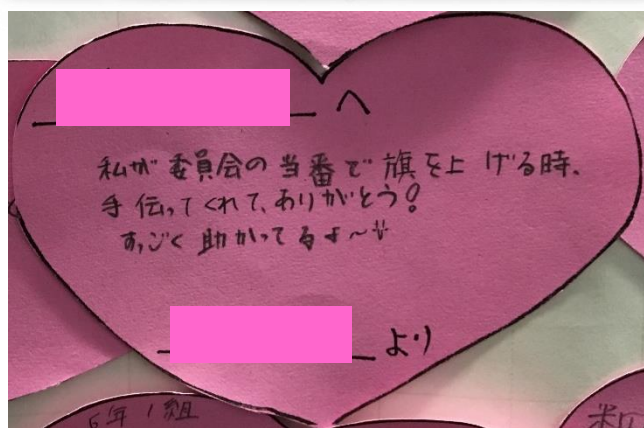 へ
私が委員会の当番で旗を上げる時、
手伝ってくれて、ありがとう!
すっごく助かってるよ〜
より
6年1組